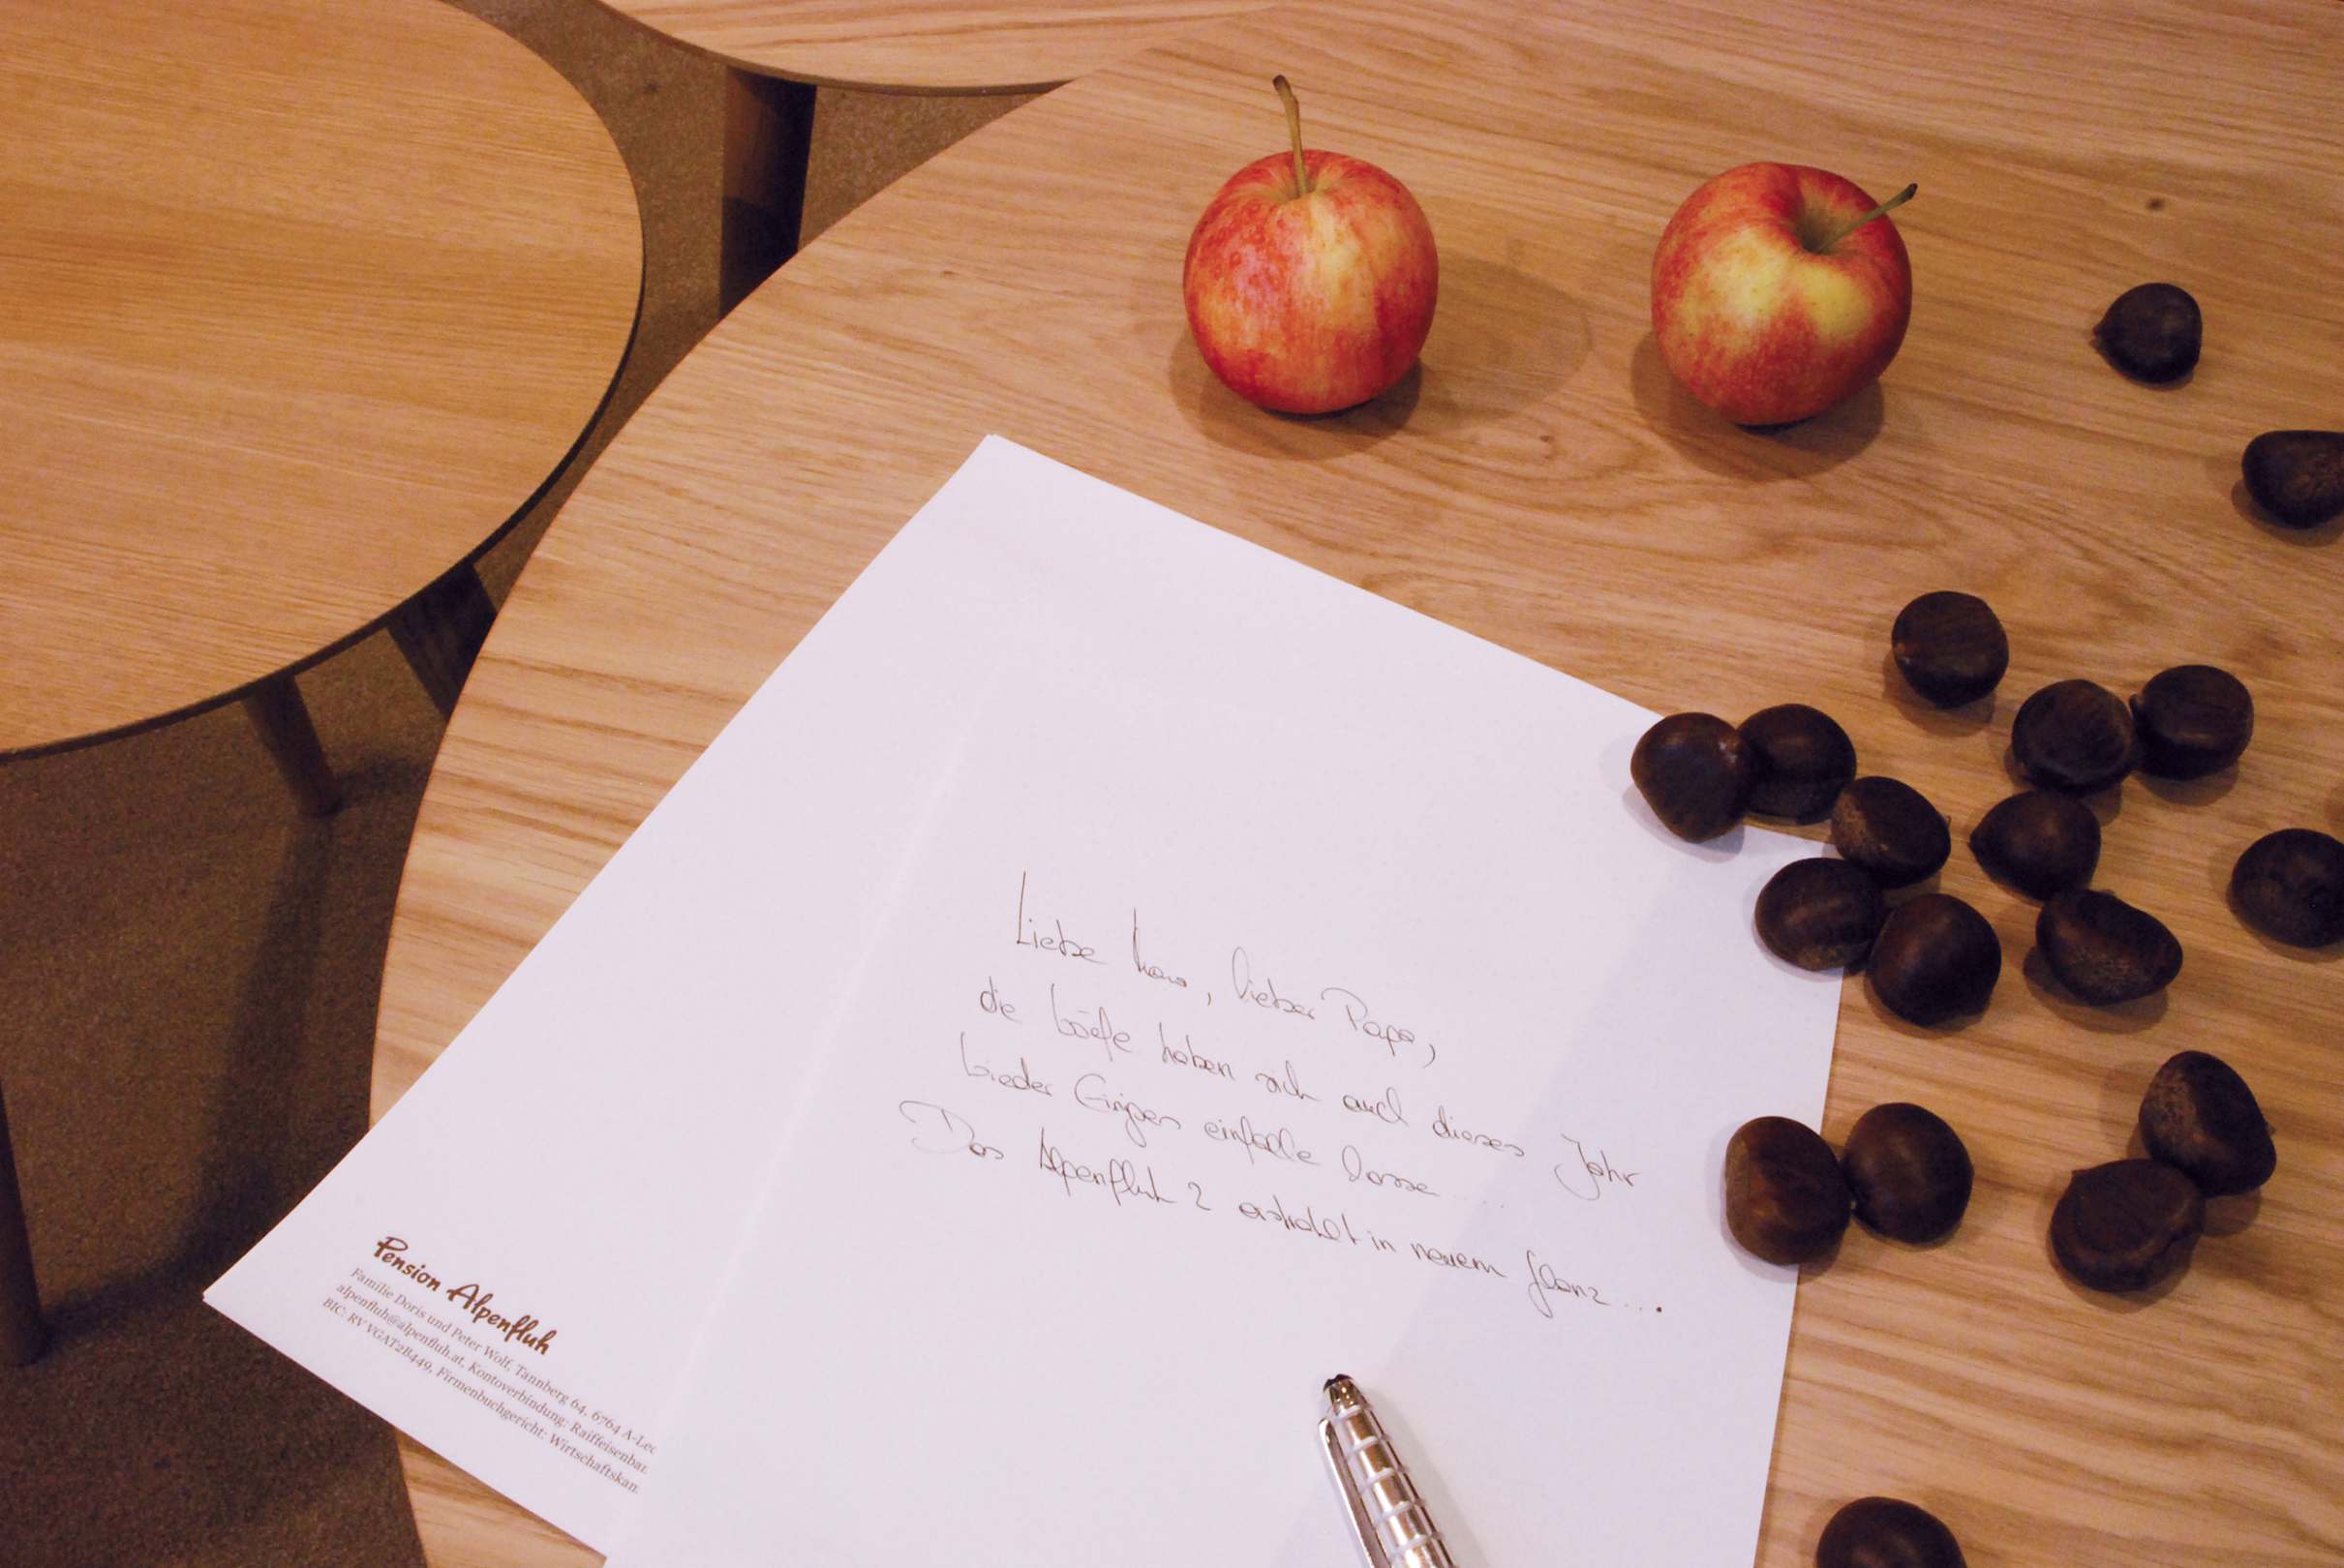 Liebe Mama, lieber Papa,
die Wölfe haben sich auch dieses Jahr
wieder Einiges einfalle lasse ....
Das Alpenfluh 2 erstrahlt in neuem Glanz ....
Pension Alpenfluh
Familie Doris und Peter Wolf, Tannberg 64, 6764 A-Lec
alpenfluh@alpenfluh.at, Kontoverbindung: Raiffeisenban
BIC: RVVGAT2B449, Firmenbuchgericht: Wirtschaftskan